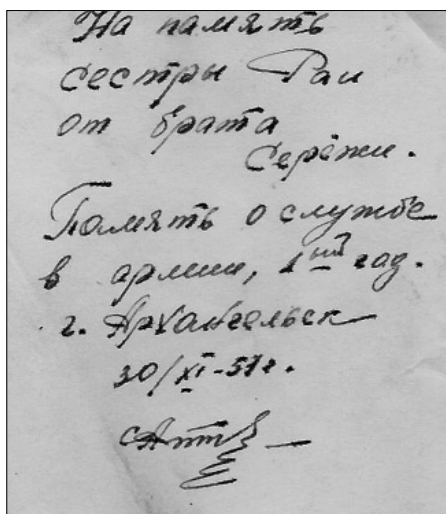 На память
сестры Раи
от брата
Серёжи.
Память о службе
в армии, 1ый год.
г. Архангельск
30/XI-51г.